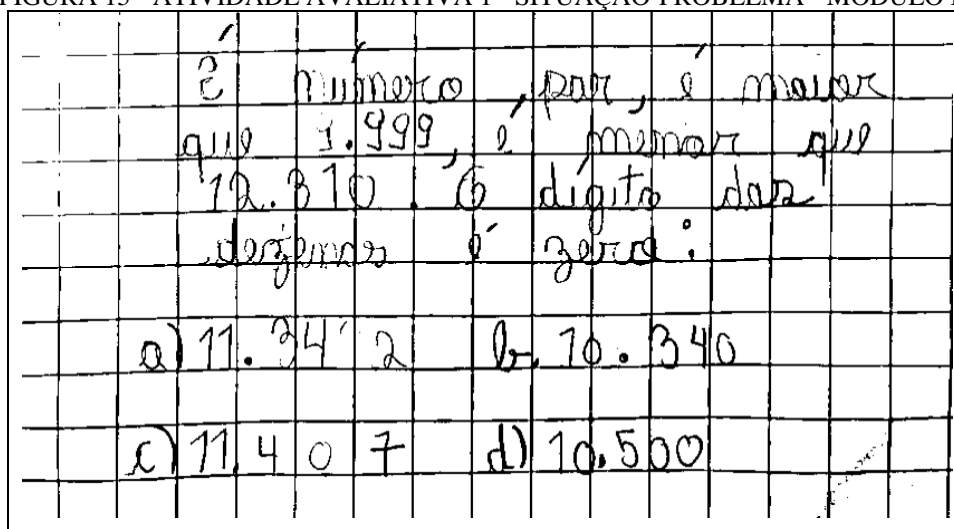 FIGURA 13 - ATIVIDADE AVALIATIVA 1 - SITUAÇÃO PROBLEMA - MÓDULO
É número, par, é maior
que 9.999, é menor que
12.310. O dígito das
dezenas é zero:
a) 11.342 b. 10.340
c) 11.407 d) 10.500